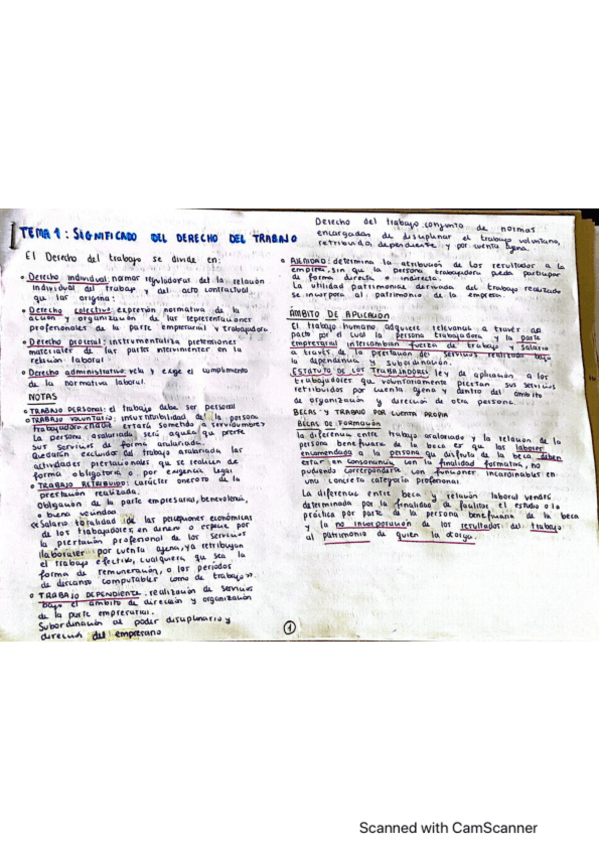 TEMA 1: SIGNIFICADO DEL DERECHO DEL TRABAJO
El Derecho del trabajo se divide en:
Derecho individual: normas reguladoras de la relación
individual del trabajo y del acto contractual
que las origina.
Derecho colectivo: expresión normativa de la
acción y organización de las representaciones
profesionales de la parte empresarial y trabajadora
Derecho procesal: instrumentaliza pretensiones
materiales de las partes intervinientes en la
relación laboral.
Derecho administrativo: vela y exige el cumplimiento
de la normativa laboral.
NOTAS
TRABAJO PERSONAL: el trabajo debe ser personal
TRABAJO VOLUNTARIO: insustituibilidad de la persona
trabajadora estará sometido a servidumbre
La persona asalariada será aquella que preste
sus servicios de forma asalariada.
Quedarán excluidas del trabajo asalariado las
actividades prestacionales que se realicen de
forma obligatoria o por exigencia legal
TRABAJO RETRIBUIDO: carácter oneroso de la
prestación realizada.
Obligación de la parte empresarial, benevolencia,
o buena vecindad
«Salario totalidad de las percepciones económicas
de los trabajadores, en dinero o especie por
la prestación profesional de los servicios
laborales por cuenta ajena, ya retribuyan
el trabajo efectivo, cualquiera que sea la
forma de remuneración, o los periodos
de descanso computables como de trabajo».
TRABAJO DEPENDIENTE: realización de servicios
bajo el ámbito de dirección y organización
de la parte empresarial.
Subordinación al poder disciplinario y
dirección del empresario
Derecho del trabajo: conjunto de normas
encargadas de disciplinar el trabajo voluntario,
retribuido, dependiente y por cuenta ajena.
AJENIDAD: determina la atribución de los resultados a la
empresa, sin que la persona trabajadora pueda participar
de forma directa o indirecta.
La utilidad patrimonial derivada del trabajo realizado
se incorpora al patrimonio de la empresa.
ÁMBITO DE APLICACIÓN
El trabajo humano adquiere relevancia a través del
pacto por el cual la persona trabajadora y la parte
empresarial intercambian fuerza de trabajo y salario
a través de la prestación de servicios realizado bajo
la dependencia y subordinación.
ESTATUTO DE LOS TRABAJADORES: ley de aplicación a los
trabajadores que voluntariamente prestan sus servicios
retribuidos por cuenta ajena y dentro del ámbito
de organización y dirección de otra persona.
BECAS Y TRABAJO POR CUENTA PROPIA
BECAS DE FORMACIÓN
la diferencia entre trabajo asalariado y la relación de la
persona beneficiaria de la beca es que las labores
encomendado a la persona que disfruta de la beca deben
estar en consonancia con su finalidad formativa, no
pudiendo corresponderla con funciones incardinables en
una concreta categoría profesional.
La diferencia entre beca y relación laboral vendrá
determinada por la finalidad de facilitar el estudio o la
práctica por parte de la persona beneficiaria de la beca
y la no incorporación de los resultados del trabajo
al patrimonio de quien la otorga.
1
Scanned with CamScanner